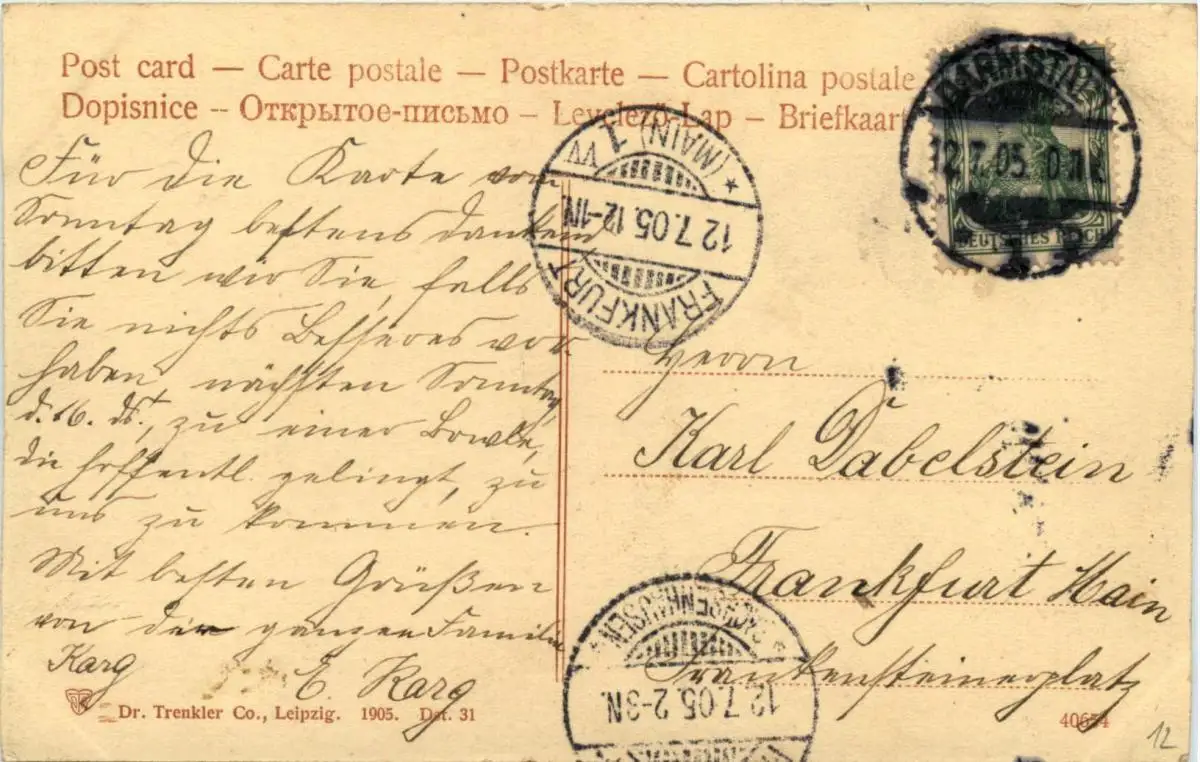 Post card — Carte postale — Postkarte — Cartolina postale
Dopisnice -- Открытое-письмо — Levelező-Lap — Briefkaart
Für die Karte vom
Sonntag bestens dankend
bitten wir Sie, falls
Sie nichts Besseres vor-
haben, nächsten Sonntag
d. 16. ds., zu einer Bowle,
die hoffentl. gelingt, zu
uns zu kommen.
Mit besten Grüßen
von der ganzen Familie
Karg
E. Karg
Dr. Trenkler Co., Leipzig. 1905. Dst. 31
FRANKFURT (MAIN) 1
12.7.05. 12-1N.
VV
DARMSTADT
12.7.05.
1
DEUTSCHES REICH
Herrn
Karl Dabelstein
Frankfurt Main
Frankensteinerplatz
SACHSENHAUSEN
12.7.05. 2-3N.
40654
12